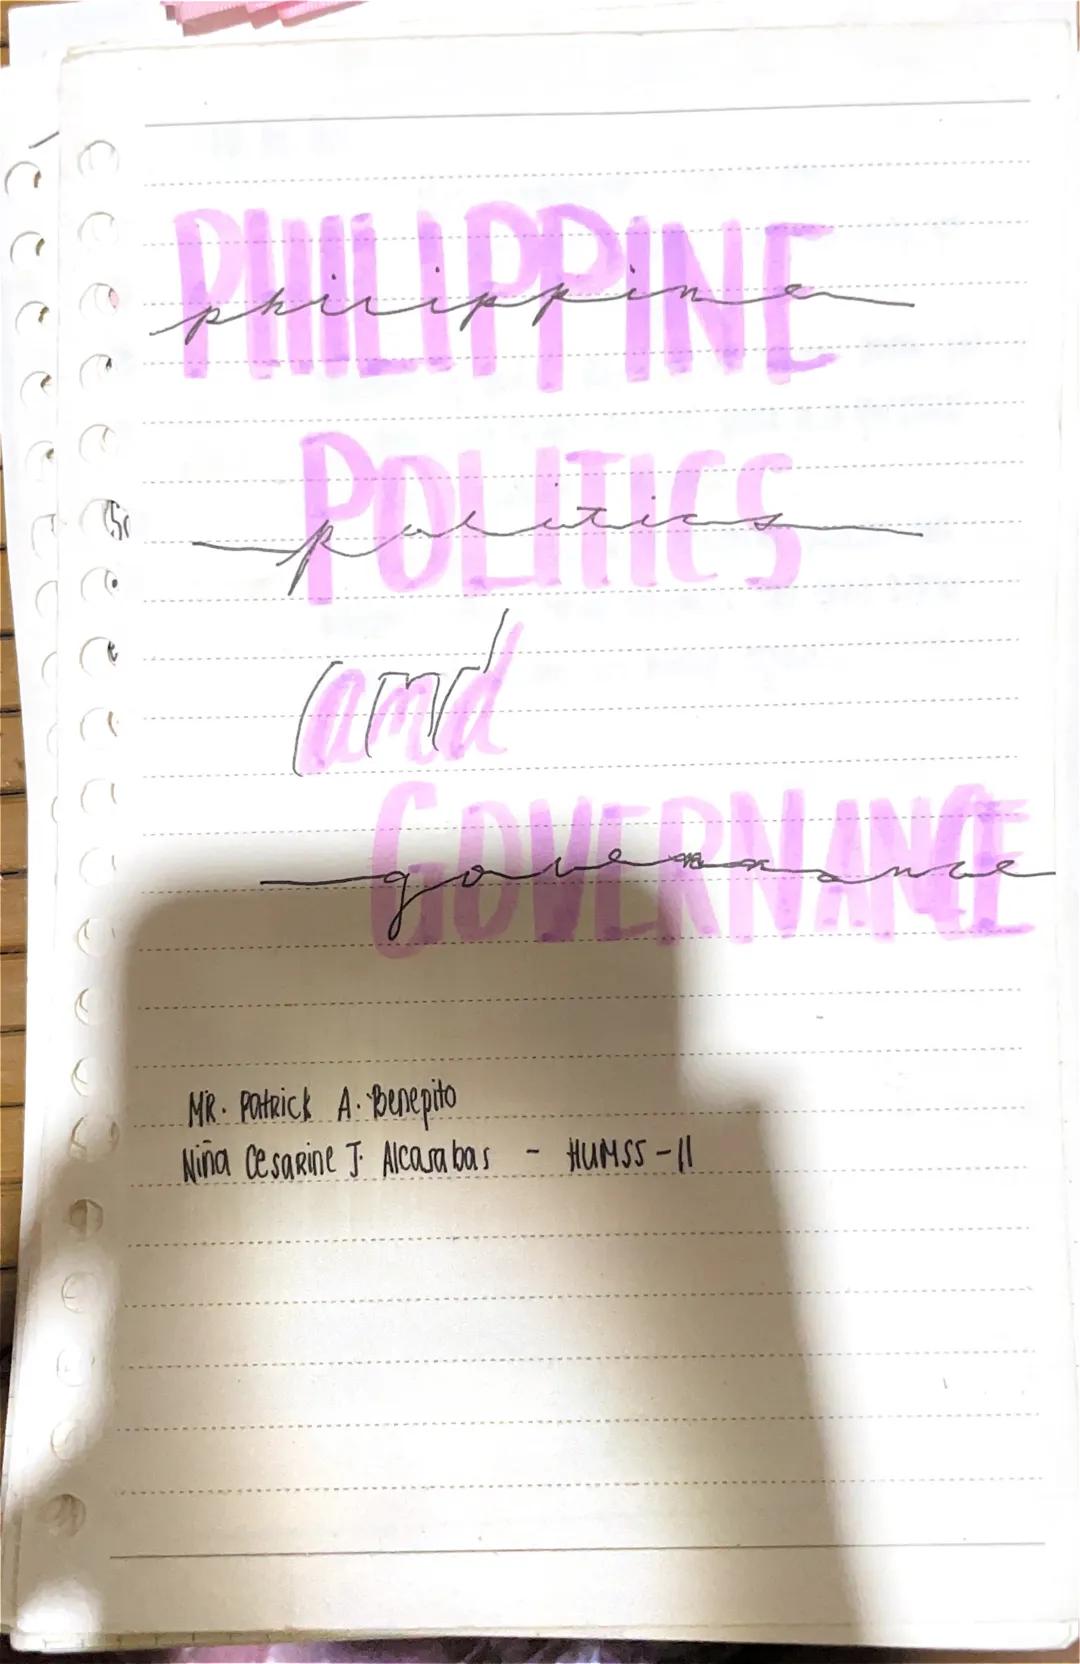 PHILIPPINE
philippine
POLITICS
politics
and
GOVERNANCE
governance
MR. PATRICK A. Benepito
Niña Cesarine J. Alcasabas - HUMSS-11